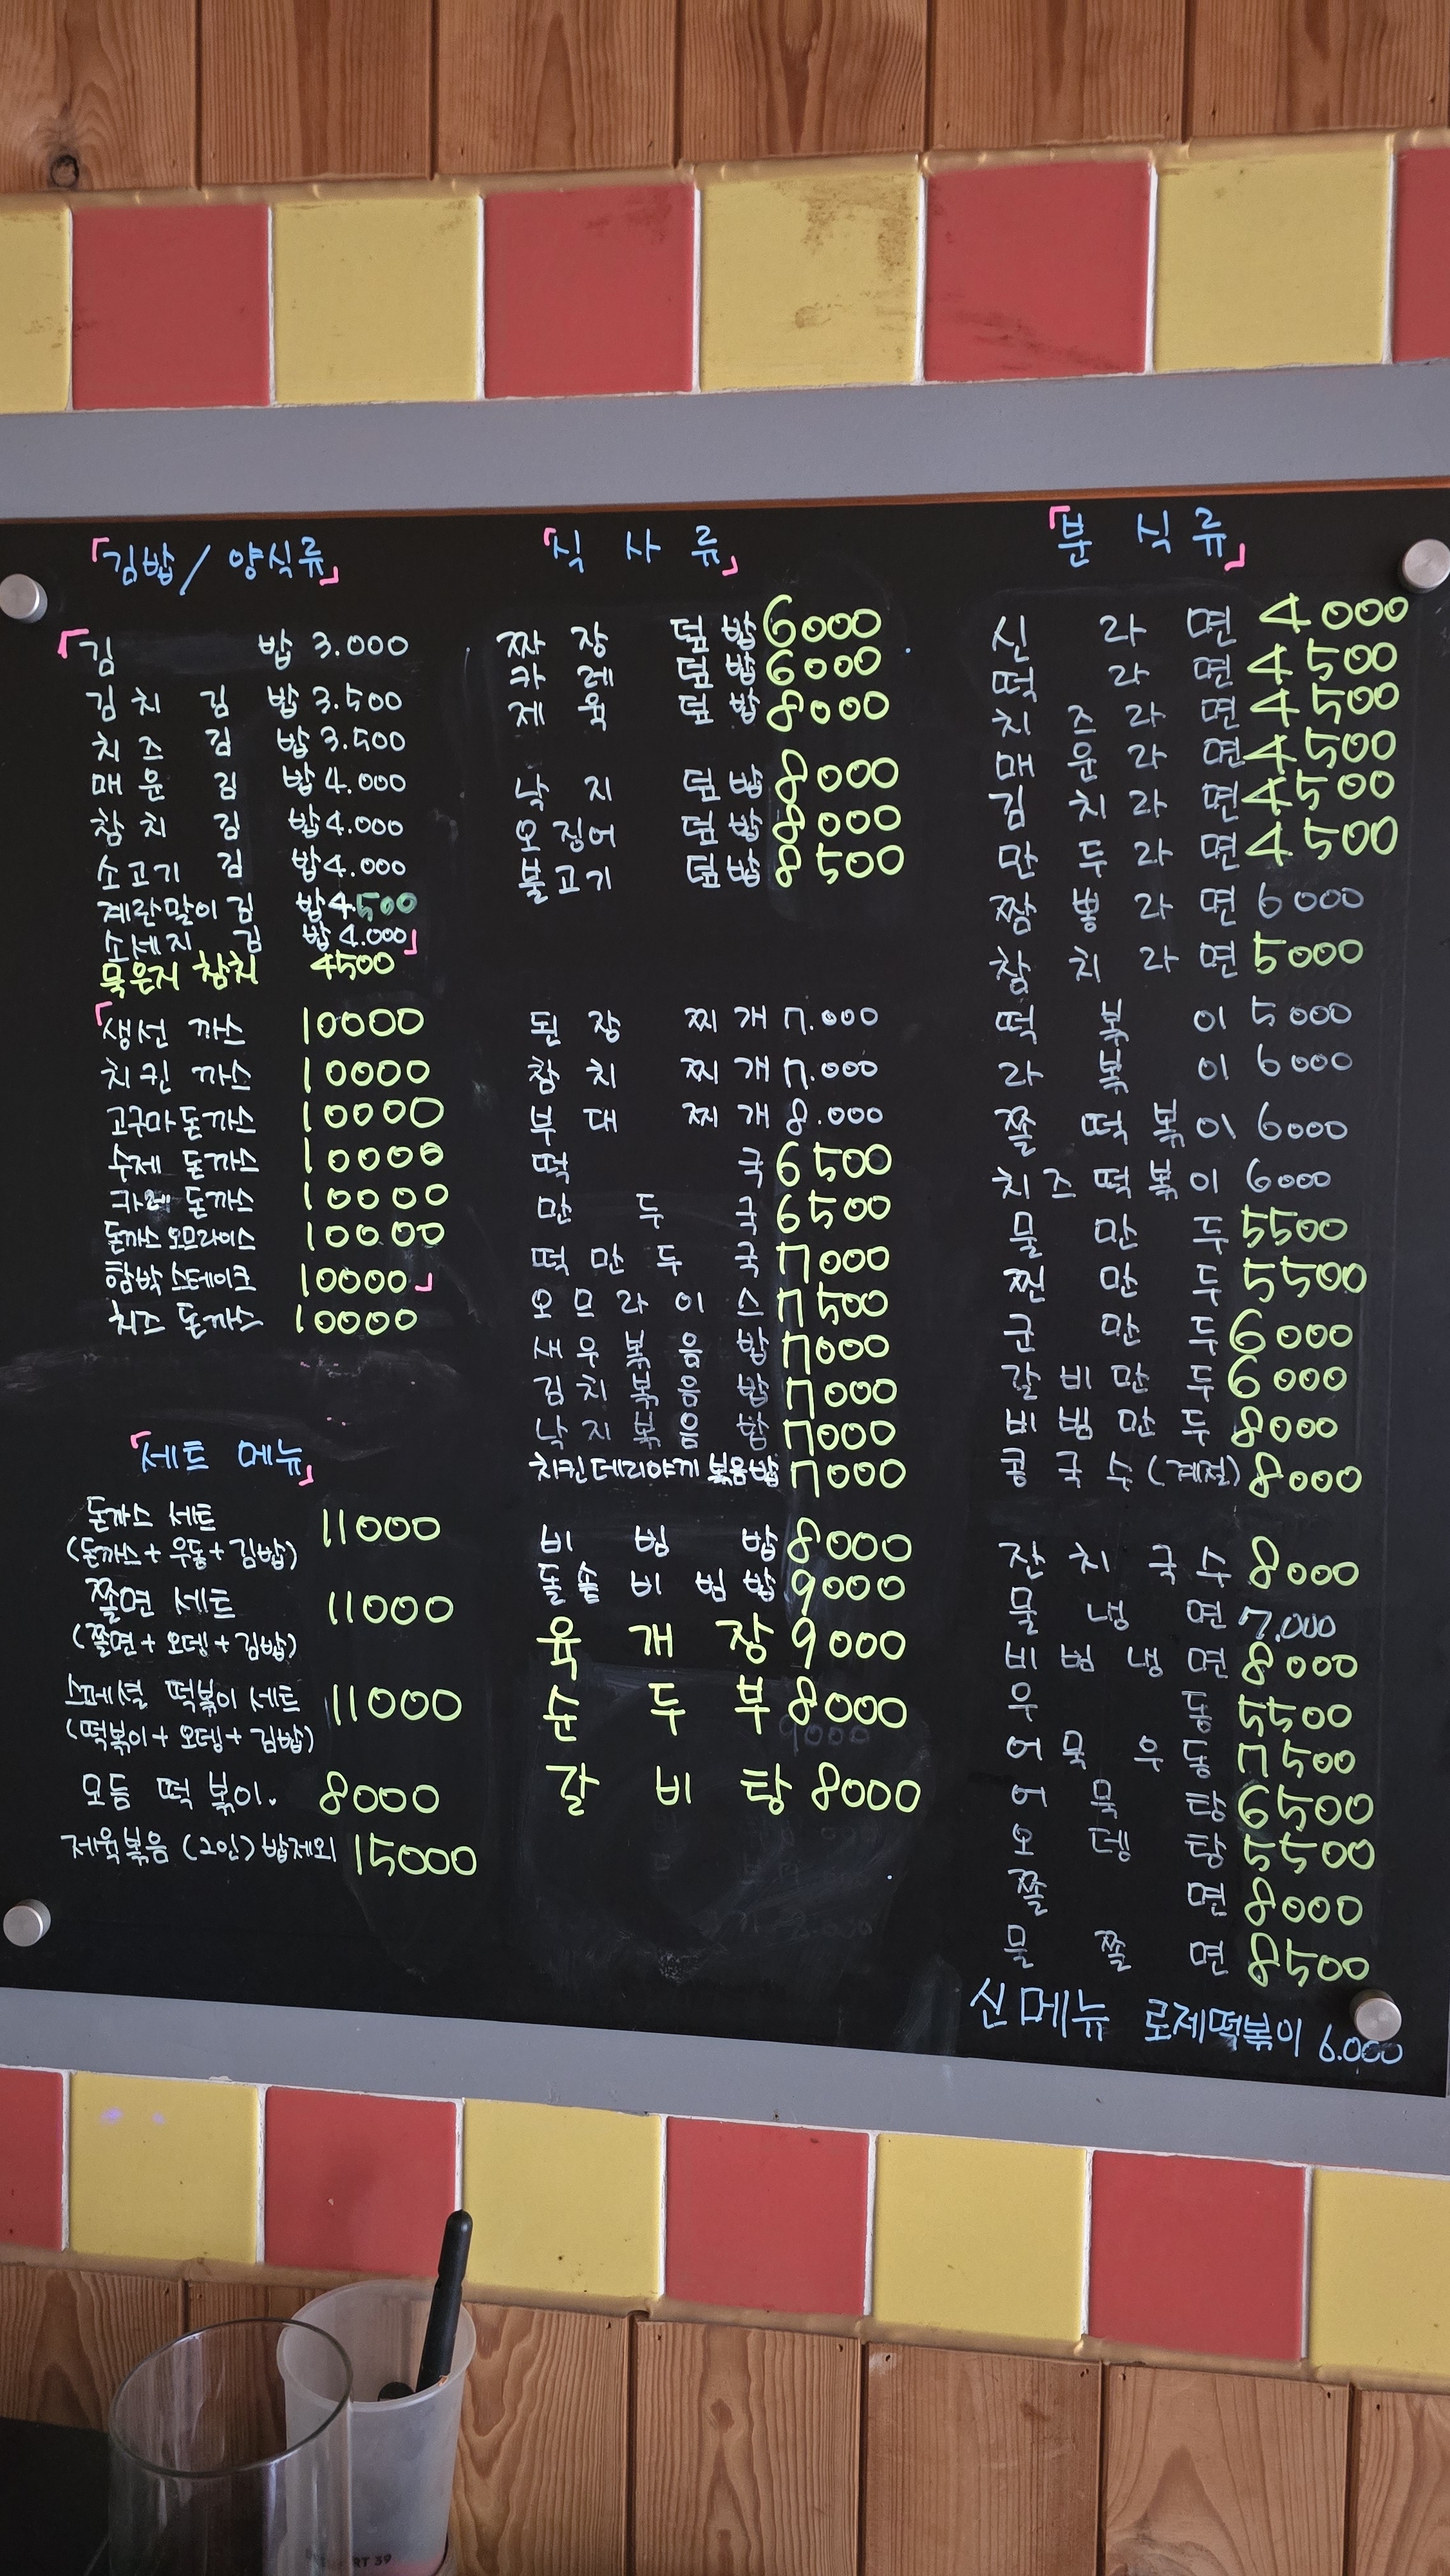 「김밥 / 양식류」
「김 밥 3.000
김치 김 밥 3.500
치즈 김 밥 3.500
매운 김 밥 4.000
참치 김 밥 4.000
소고기 김 밥 4.000
계란말이 김 밥 4.500
소세지 김 밥 4.000」
묵은지 참치 4500
「생선 까스 10000
치킨 까스 10000
고구마 돈까스 10000
수제 돈까스 10000
카레 돈까스 10000
돈까스 오므라이스 10000
함박 스테이크 10000」
치즈 돈까스 10000
「세트 메뉴」
돈까스 세트 11000
(돈까스 + 우동 + 김밥)
쫄면 세트 11000
(쫄면 + 오뎅 + 김밥)
스페셜 떡볶이 세트 11000
(떡볶이 + 오뎅 + 김밥)
모듬 떡볶이. 8000
제육볶음 (2인) 밥제외 15000
「식 사 류」
짜장 덮밥 6000
카레 덮밥 6000
제육 덮밥 8000
낙지 덮밥 8000
오징어 덮밥 8000
불고기 덮밥 8500
된장 찌개 7.000
참치 찌개 7.000
부대 찌개 8.000
떡 국 6500
만 두 국 6500
떡 만 두 국 7000
오 므 라 이 스 7500
새우볶음밥 7000
김치볶음밥 7000
낙지볶음밥 7000
치킨데리야끼 볶음밥 7000
비 빔 밥 8000
돌솥 비 빔 밥 9000
육 개 장 9000
순 두 부 8000
9000
갈 비 탕 8000
「분 식 류」
신 라 면 4000
떡 라 면 4500
치 즈 라 면 4500
매 운 라 면 4500
김 치 라 면 4500
만 두 라 면 4500
짬 뽕 라 면 6000
참 치 라 면 5000
떡 볶 이 5000
라 볶 이 6000
쫄 떡 볶 이 6000
치 즈 떡 볶 이 6000
물 만 두 5500
찐 만 두 5500
군 만 두 6000
갈 비 만 두 6000
비 빙 만 두 8000
콩 국 수 (계절) 8000
잔 치 국 수 8000
물 냉 면 7.000
비 빔 냉 면 8000
우 동 5500
어 묵 우 동 7500
어 묵 탕 6500
오 뎅 탕 5500
쫄 면 8000
물 쫄 면 8500
신메뉴 로제떡볶이 6.000